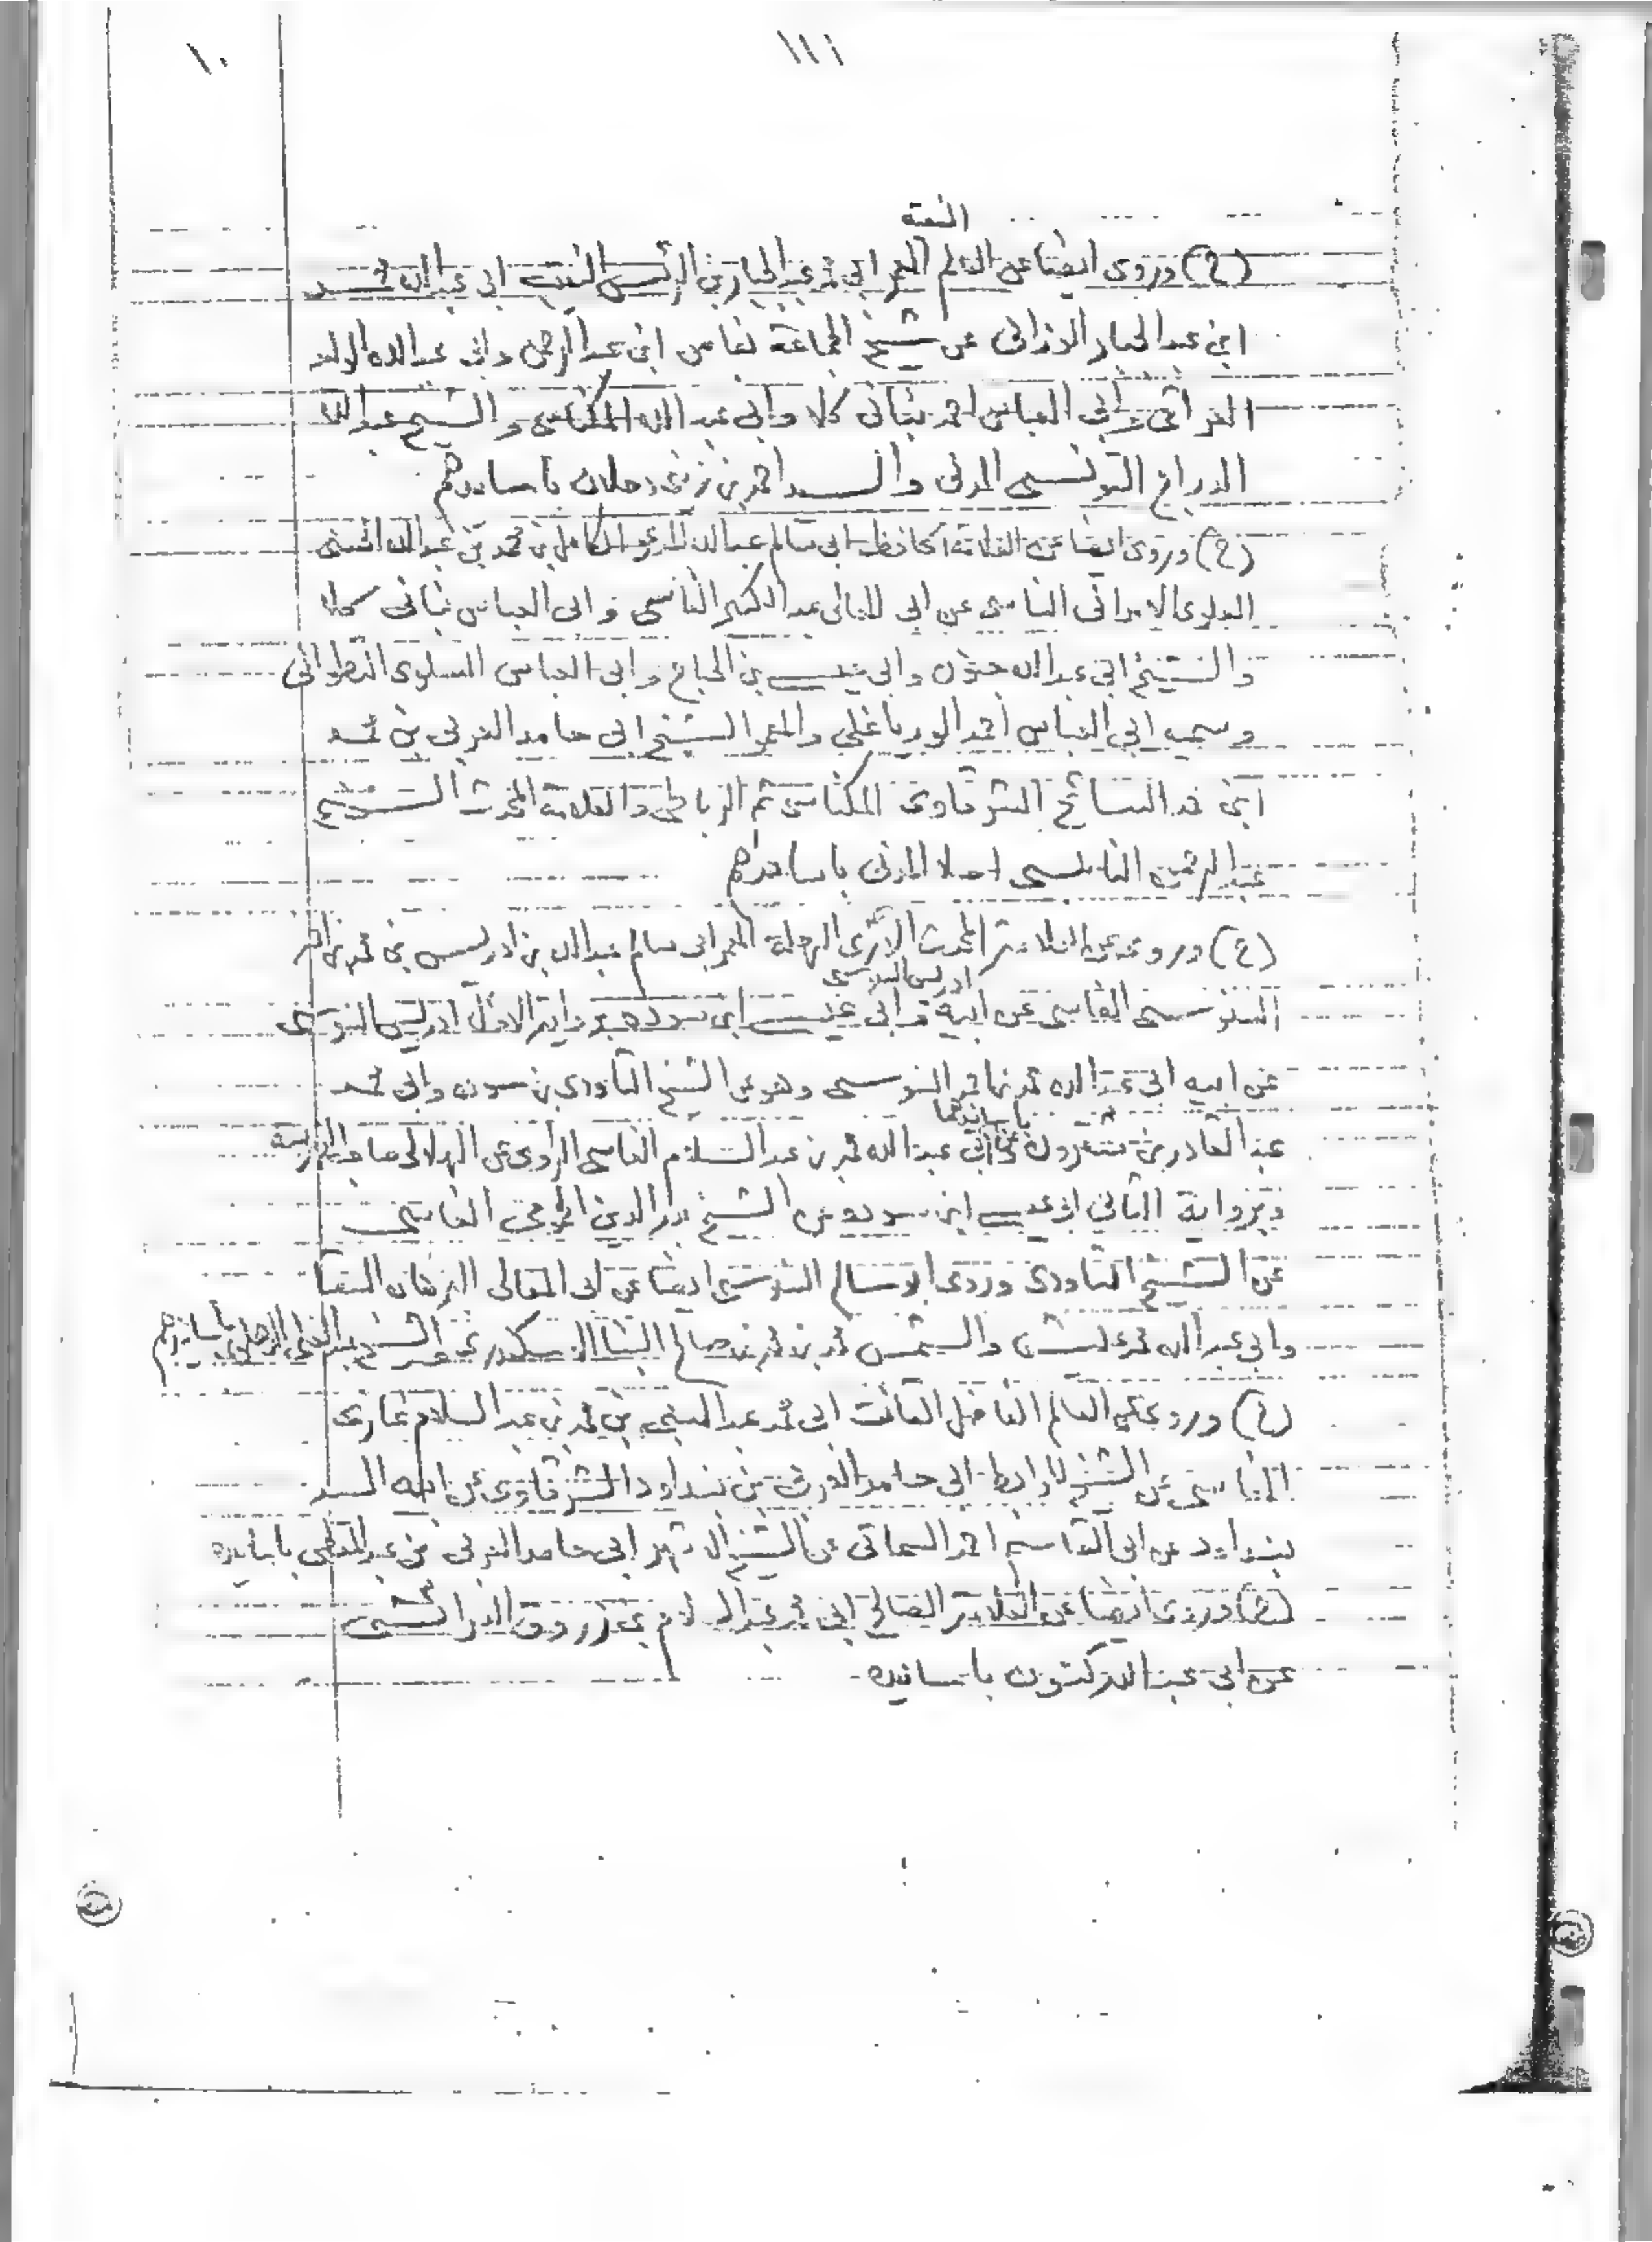 ١١١
١٠
الفقيه
(ح) وروى ايضا عن العالم المعمر ابي محمد عبد الجبار بن الرئيس النقيب ابي عبد الله محمد
ابن عبد الجبار الوزاني عن شيخ الجماعة بفاس ابن عبد الرحمن وابي عبد الله الوليد
العراقي وابي العباس احمد بناني كلا وابي عبد الله المكناسي والشيخ عبد الله
الدراج التونسي المدني والسيد احمد بن زيني دحلان باسانيدهم
(ح) وروى ايضا عن العلامة الحافظ ابي سالم عبد الله المدعو الكامل بن محمد بن عبد الله الحسني
العلوي الامراني الفاسي عن ابي المعالي عبد الكبير الفاسي وابي العباس بناني كلا
والشيخ ابي عبد الله جنون وابي عيسى بن الحاج وابي العباس السلوي التطواني
وسميه ابي العباس احمد الورياغلي والمعمر الشيخ ابي حامد العربي بن محمد
ابن السائح الشرقاوي المكناسي ثم الرباطي والعلامة المحدث الشيخ
عبد الرحمن النابلسي اصلا المدني باسانيدهم
(ح) وروى عن العلامة المحدث الاثري الرحلة المعمر ابي سالم عبد الله بن ادريس بن محمد بن احمد
ادريس السنوسي
السنوسي الفاسي عن ابيه وابي عيسى ابن سودة برواية الاول ادريس السنوسي
عن ابيه ابي عبد الله محمد بن احمد السنوسي وهو عن الشيخ التاودي بن سودة وابي محمد
باسانيدهما
عبد القادر بن شقرون عن ابي عبد الله محمد بن عبد السلام الفاسي الراوي عن الهلالي صاحب الفهرسة
وبرواية الثاني ابو عيسى ابن سودة عن الشيخ بدر الدين الحمومي الفاسي
عن الشيخ التاودي وروى ابو سالم السنوسي ايضا عن ابي المعالي البرهان السقا
وابي عبد الله محمد عليش والشمس محمد بن محمد بن صالح البنا الاسكندري عصر الشيخ عبد الغني الدهلوي باسانيدهم
(ح) وروى عن العالم الفاضل القانت ابي محمد عبد النبي بن محمد بن عبد السلام غازي
الفاسي عن الشيخ المرابط ابي حامد العربي بن بنداود الشرقاوي عن ابيه السيد
بنداود عن ابي القاسم احمد السماتي عن الشيخ الشهير ابي حامد العربي بن عبد المعطي باسانيده
(ح) وروى ايضا عن العلامة الصالح ابي محمد عبد السلام بن زروق العرائشي
عن ابي عبد الله كنون باسانيده